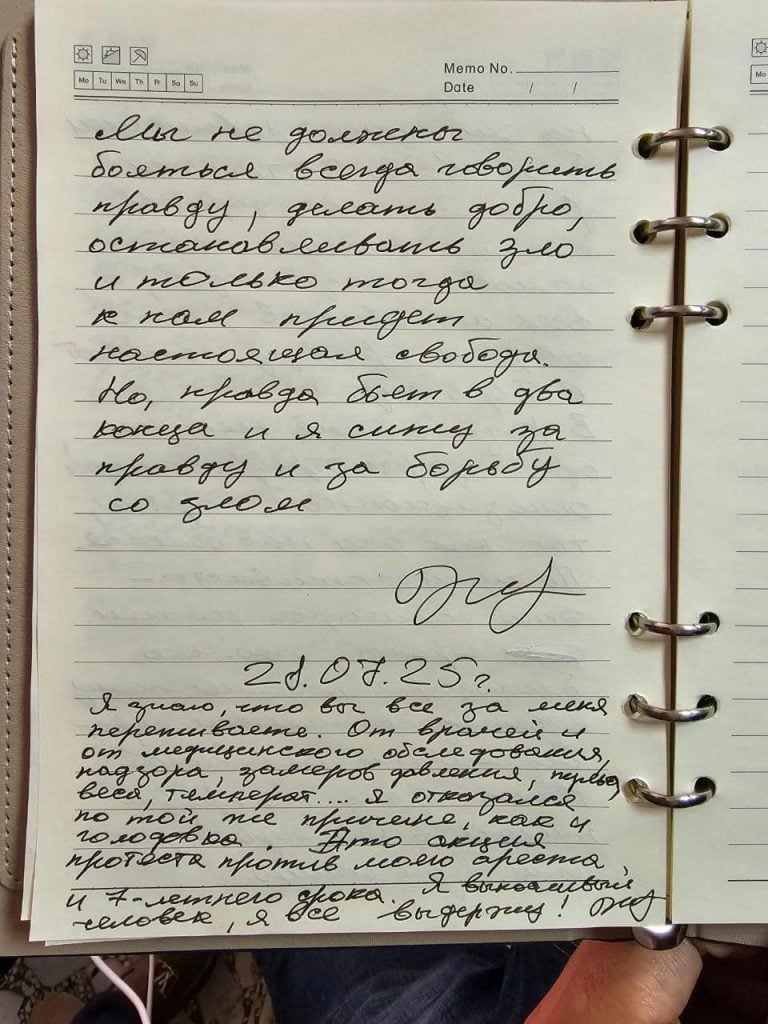 Mo Tu We Th Fr Sa Su
Memo No.
Date / /
Мы не должны
бояться всегда говорить
правду, делать добро,
останавливать зло
и только тогда
к нам придет
настоящая свобода.
Но, правда бьет в два
конца и я сижу за
правду и за борьбу
со злом
28.07.25г.
Я знаю, что вы все за меня
переживаете. От врачей и
от медицинского обследования,
надзора, замеров давления, пульса,
веса, температ.... я отказался
по той же причине, как и
голодовка. Это акция
протеста против моего ареста,
и 7-летнего срока. Я выносливый
человек, я все выдержу!